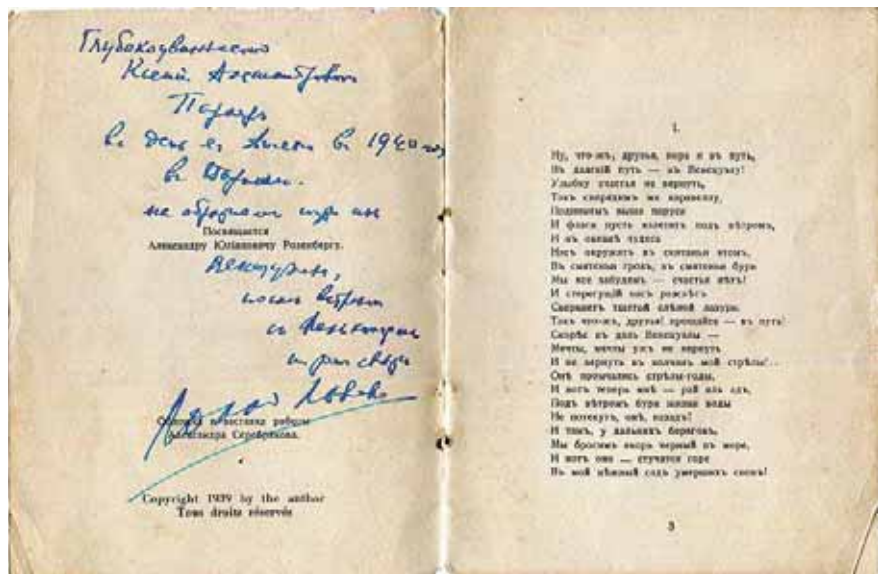 Глубокоуважаемо
Ксении Александровн
в день ея Ангела в 1940 году
в Париж
Посвящается
Александру Юліановичу Розенбергу.
Венецуэлы,
после встречи
с
и
Обложка и заставка работы
Александра Серебрякова.
Copyright 1939 by the author
Tous droits réservés
1.
Ну, что-жъ, друзья, пора и въ путь,
Въ далекій путь — въ Венецуэлу!
Улыбку счастья не вернуть,
Такъ снарядимъ же каравеллу,
Поднимемъ выше паруса
И флаги пусть взлетятъ подъ вѣтромъ,
И въ океанѣ чудеса
Насъ окружатъ въ скитаньи этомъ.
Въ смятеньи грозъ, въ смятеньи бурь
Мы все забудемъ — счастья нѣтъ!
И стерегущій насъ разсвѣтъ
Сверкнетъ тщетой слѣпой лазури.
Такъ что-жъ, друзья! прощайте — въ путь!
Скорѣе въ даль Венецуэлы —
Мечты, мечты ужъ не вернуть
И не вернуть въ колчанъ мой стрѣлы!..
Онѣ промчались стрѣлы-годы,
И вотъ теперь мнѣ — рай иль адъ,
Подъ вѣтромъ бури жизни воды
Не потекутъ, онѣ, назадъ!
И тамъ, у дальнихъ береговъ,
Мы бросимъ якорь черный въ море,
И вотъ оно — стучится горе
Въ мой нѣжный садъ умершихъ сновъ!
3